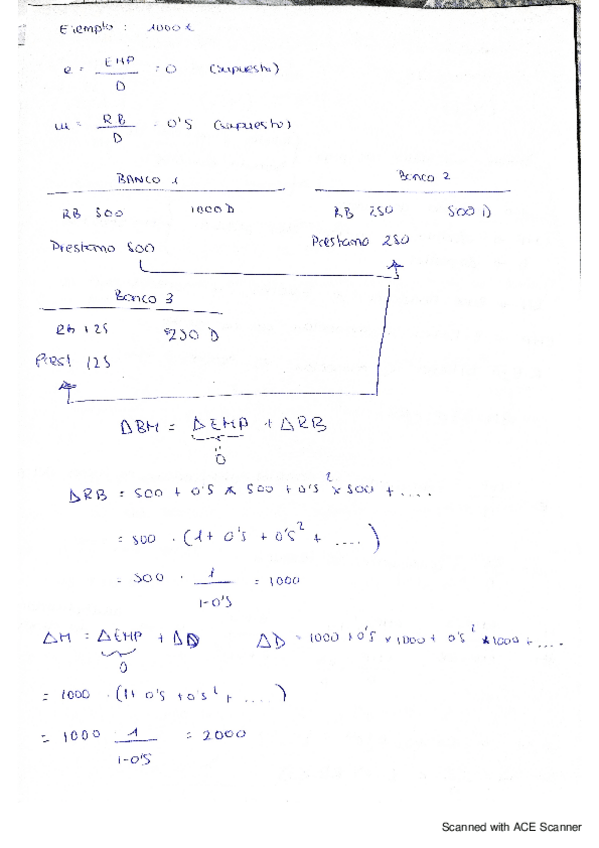 Ejemplo : 1000 €
e = EMP / D = 0 (supuesto)
w = RB / D = 0'5 (supuesto)
BANCO 1
RB 500 1000 D
Prestamo 500
Banco 2
RB 250 500 D
Prestamo 250
Banco 3
RB 125 250 D
Prest 125
ΔBM = ΔEMP + ΔRB
0
ΔRB = 500 + 0'5 x 500 + 0'5² x 500 + ....
= 500 · (1 + 0'5 + 0'5² + ....)
= 500 · 1 / 1-0'5 = 1000
ΔM = ΔEMP + ΔD ΔD = 1000 + 0'5 x 1000 + 0'5² x 1000 + ....
0
= 1000 · (1 + 0'5 + 0'5² + ....)
= 1000 1 / 1-0'5 = 2000
Scanned with ACE Scanner